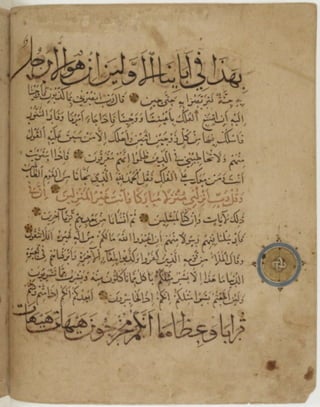 بهذا في آبائنا الأولين إن هو إلا رجل
به جنة فتربصوا به حتى حين قال رب انصرني بما كذبون فأوحينا
إليه أن اصنع الفلك بأعيننا ووحينا فإذا جاء أمرنا وفار التنور
فاسلك فيها من كل زوجين اثنين وأهلك إلا من سبق عليه القول
منهم ولا تخاطبني في الذين ظلموا إنهم مغرقون فإذا استويت
أنت ومن معك على الفلك فقل الحمد لله الذي نجانا من القوم الظالمين
وقل رب أنزلني منزلا مباركا وأنت خير المنزلين إن في
ذلك لآيات وإن كنا لمبتلين ثم أنشأنا من بعدهم قرنا آخرين
فأرسلنا فيهم رسولا منهم أن اعبدوا الله ما لكم من إله غيره أفلا تتقون
وقال الملأ من قومه الذين كفروا وكذبوا بلقاء الآخرة وأترفناهم في الحياة
الدنيا ما هذا إلا بشر مثلكم يأكل مما تأكلون منه ويشرب مما تشربون
ولئن أطعتم بشرا مثلكم إنكم إذا لخاسرون أيعدكم أنكم إذا متم وكنتم
ترابا وعظاما أنكم مخرجون هيهات هيهات